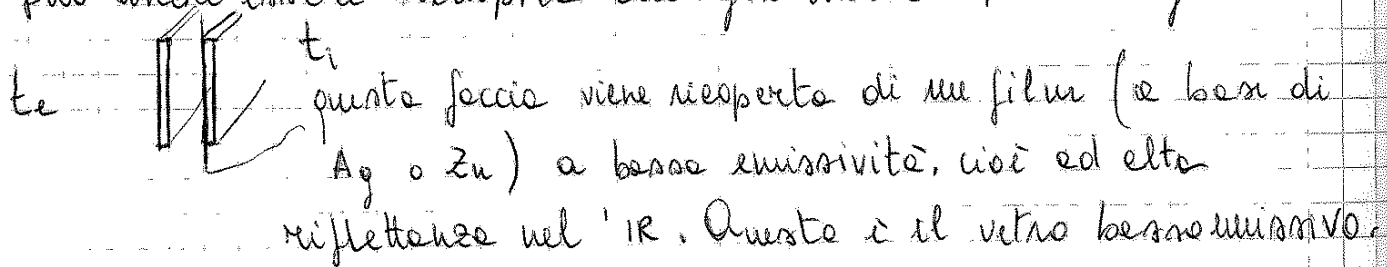 può anche essere
ti
te
questa faccia viene ricoperta di un film (a base di
Ag o Zn) a bassa emissività, cioè ad alta
riflettanza nel 'IR. Questo è il vetro bassoemissivo.